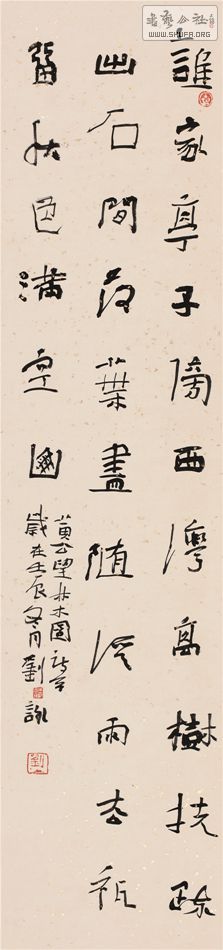 書藝公社
WWW.SHUFA.ORG
誰家亭子傍西灣高樹扶疏
出石間落葉盡隨溪雨去祗
留秋色滿空
黄公望林木圖詩
歲在壬辰冬月劉詠